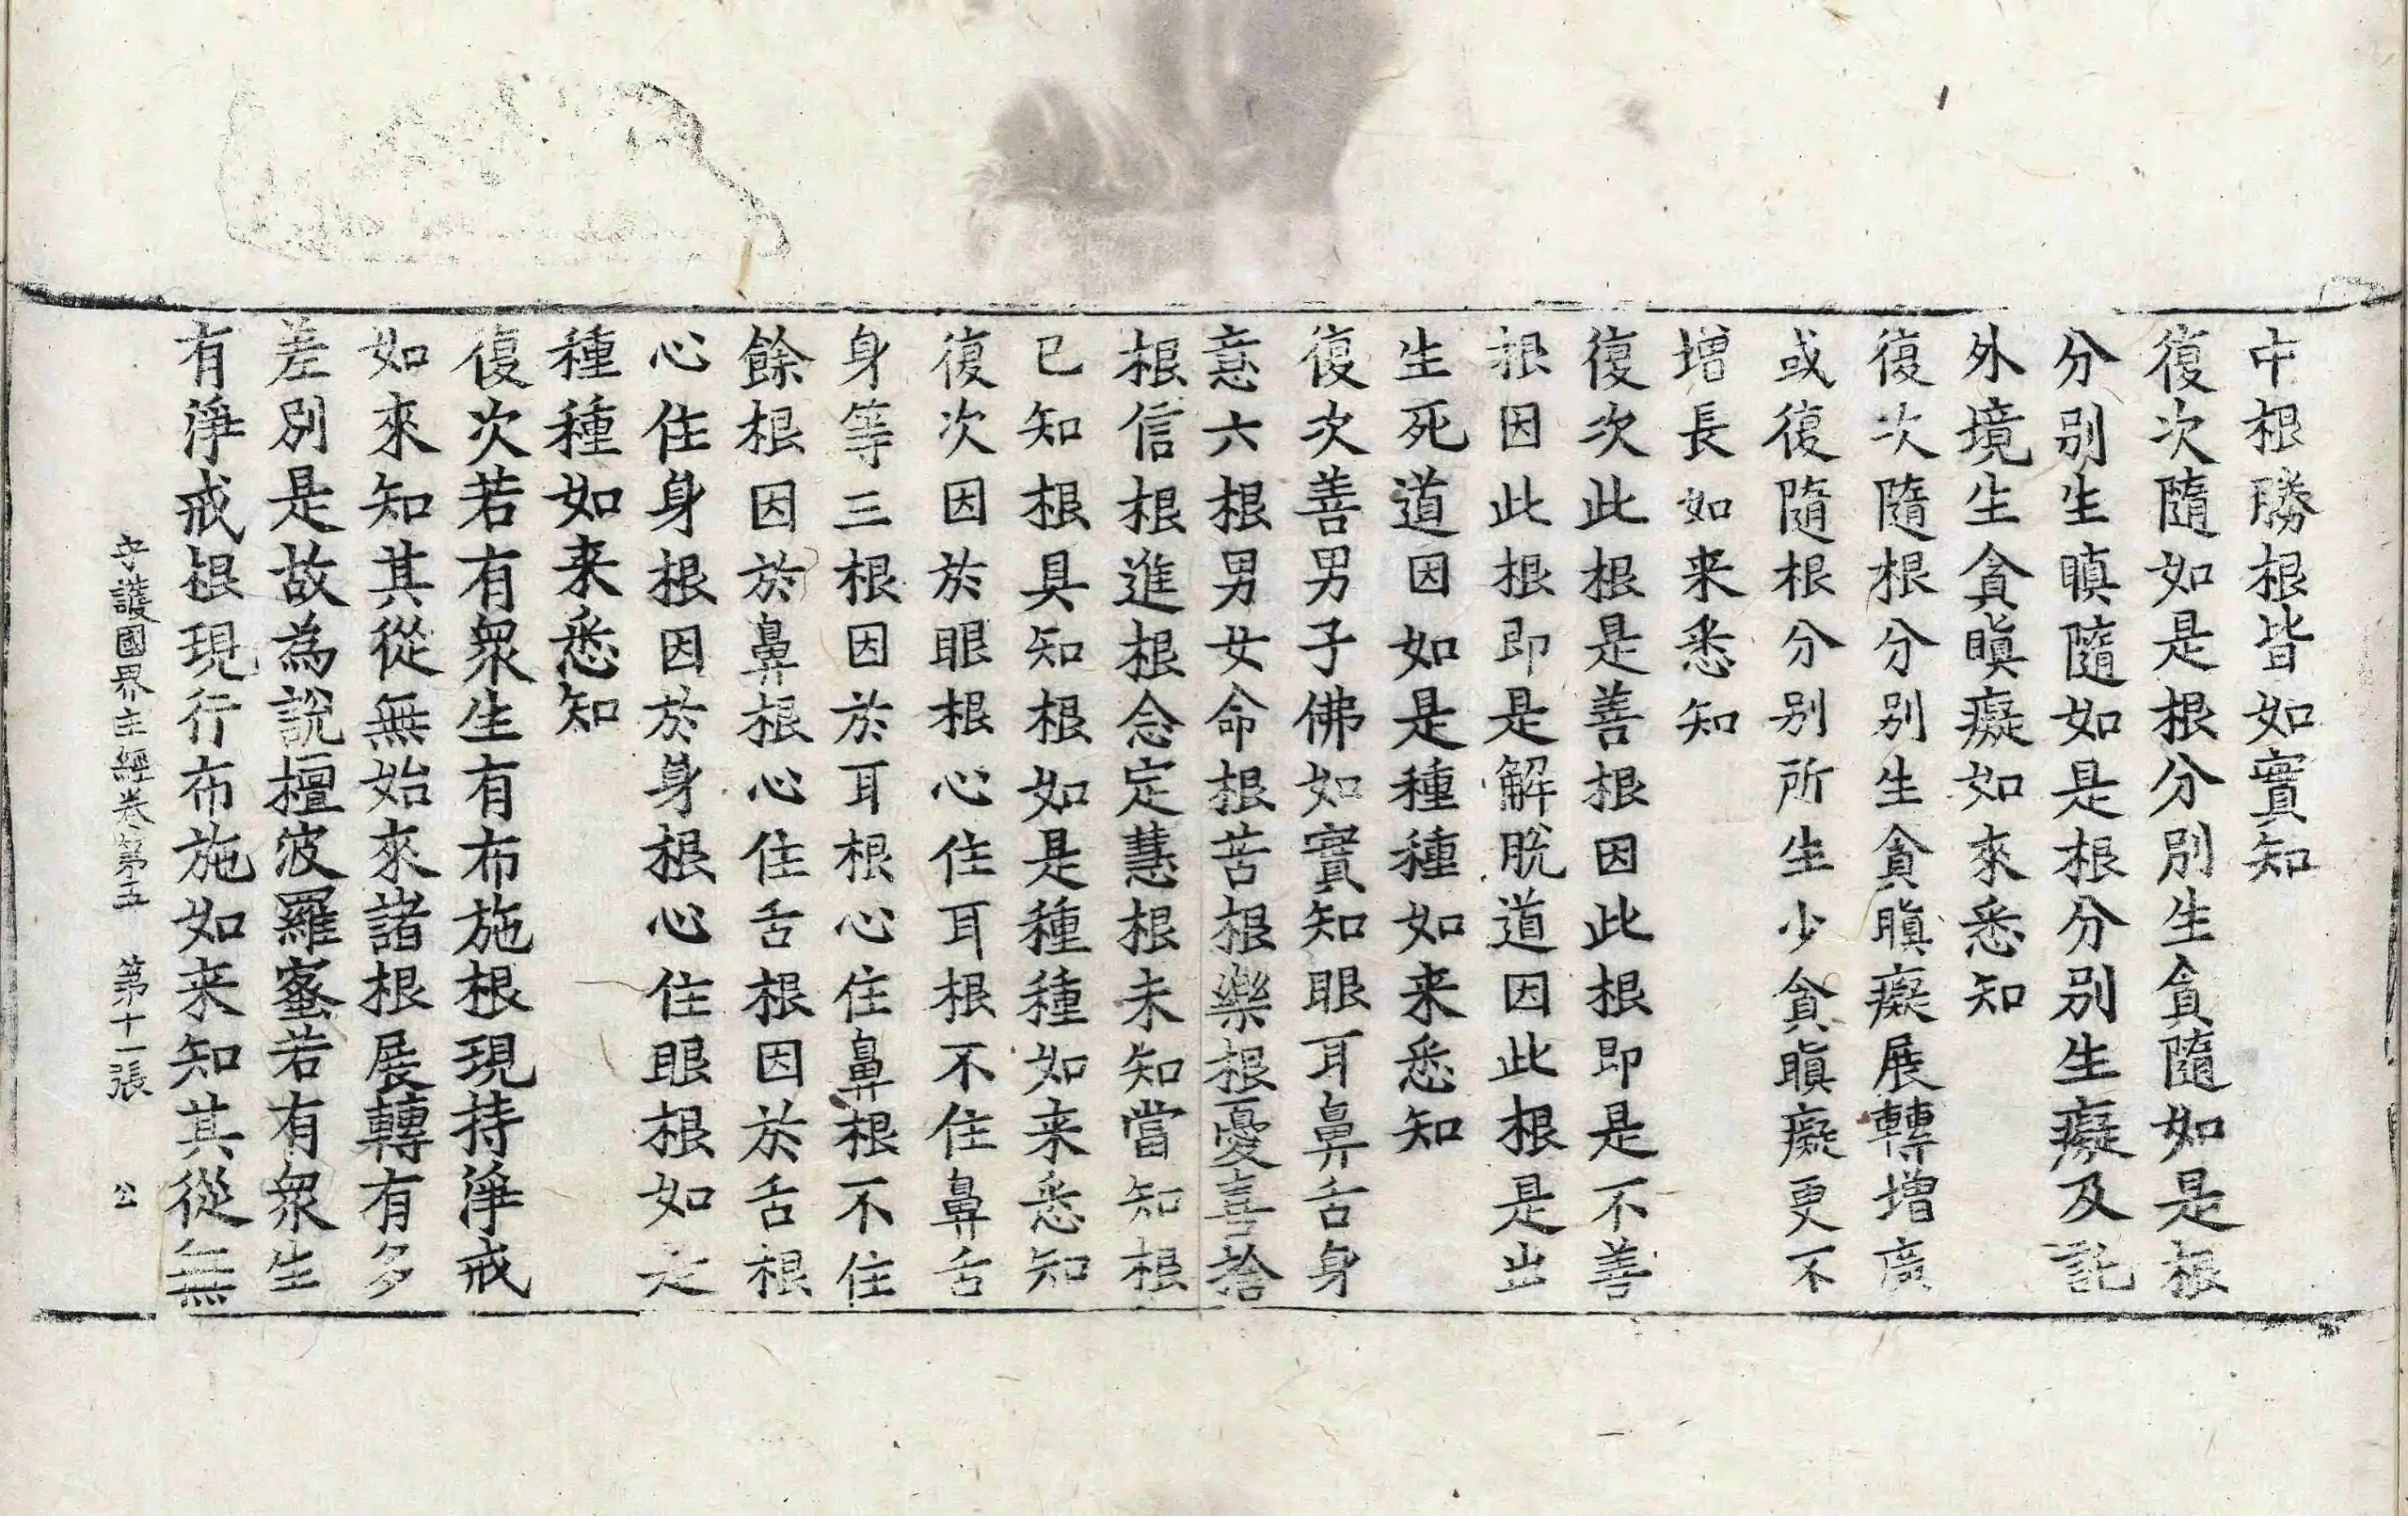 中根勝根皆如實知
復次隨如是根分別生貪隨如是根
分別生瞋隨如是根分別生癡及託
外境生貪瞋癡如來悉知
復次隨根分別生貪瞋癡展轉增廣
或復隨根分別所生少貪瞋癡更不
增長如来悉知
復次此根是善根因此根即是不善
根因此根即是解脫道因此根是出
生死道因如是種種如来悉知
復次善男子佛如實知眼耳鼻舌身
意六根男女命根苦根樂根憂喜捨
根信根進根念定慧根未知當知根
已知根具知根如是種種如来悉知
復次因於眼根心住耳根不住鼻舌
身等三根因於耳根心住鼻根不住
餘根因於鼻根心住舌根因於舌根
心住身根因於身根心住眼根如是
種種如来悉知
復次若有衆生有布施根現持淨戒
如來知其從無始來諸根展轉有多
差別是故為說檀波羅蜜若有衆生
有淨戒根現行布施如来知其從無
守護國界主經卷第五 第十一張 公